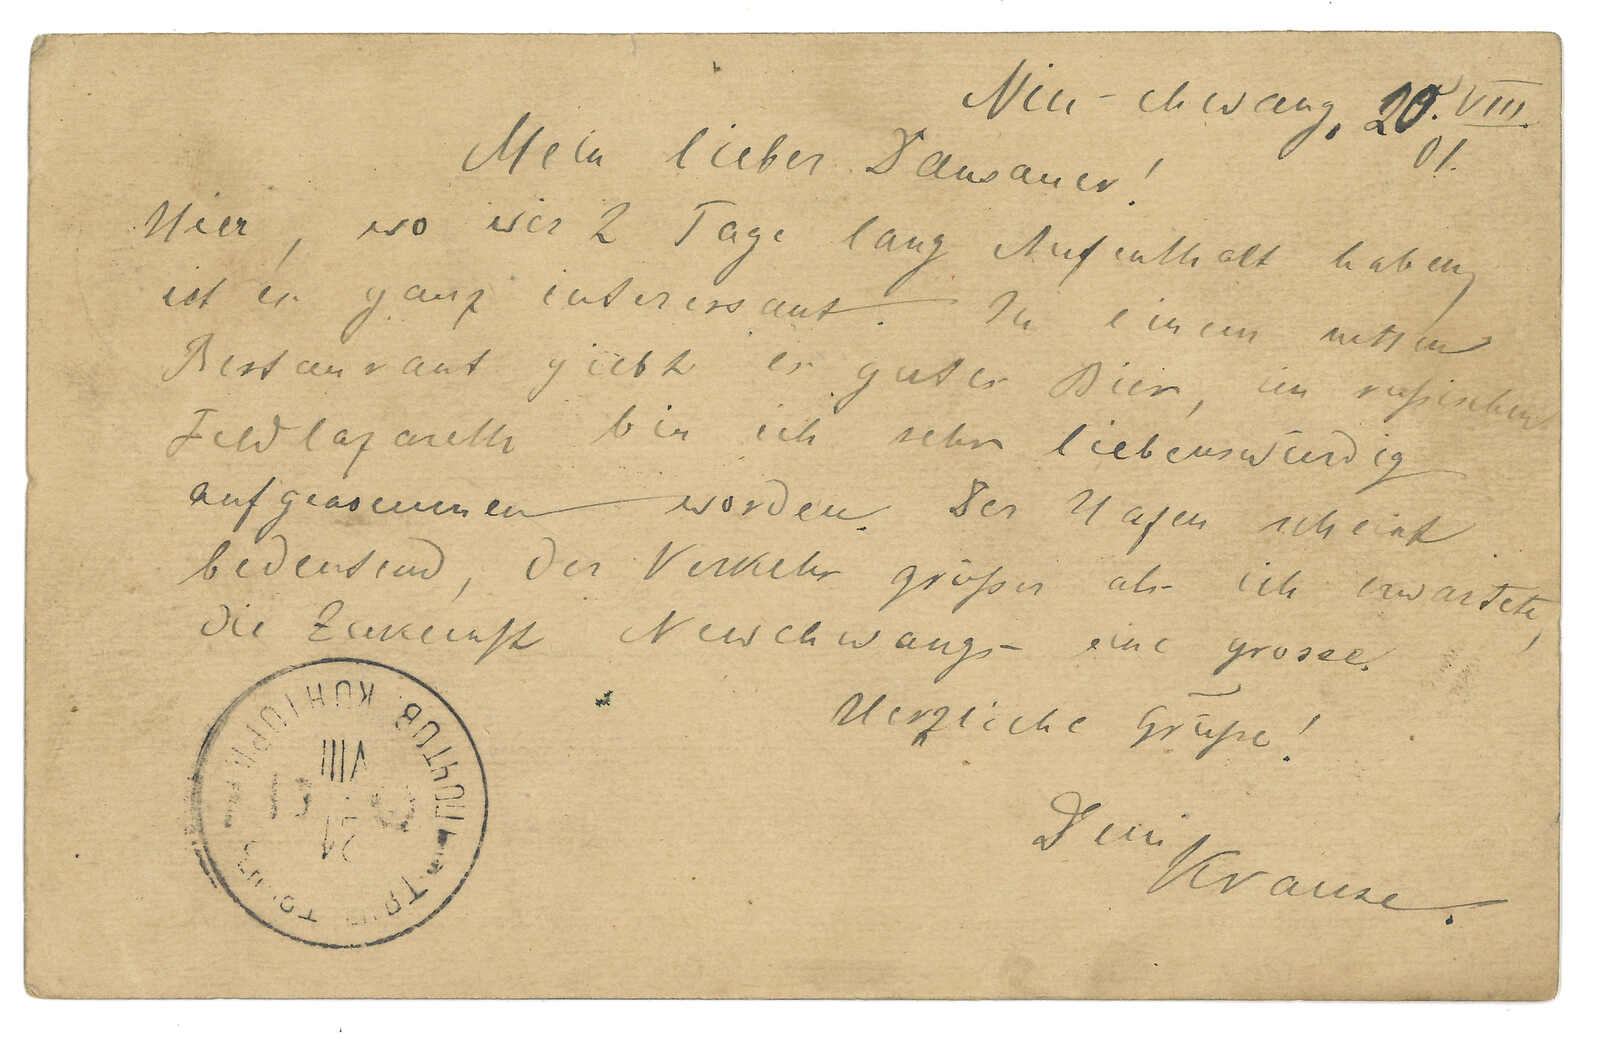 Niu-chwang, 20. VIII.
01.
Mein lieber Dausauer!
Hier, wo wir 2 Tage lang Aufenthalt haben,
ist es ganz interessant. In einem netten
Restaurant giebt es gutes Bier, im russischen
Feldlazareth bin ich sehr liebenswürdig
aufgenommen worden. Der Hafen scheint
bedeutend, der Verkehr größer als ich erwartete,
die Zukunft Newchwangs eine grosse.
Herzliche Grüße!
Dein
Krause.
ПОЧТОВ КОНТОРА
VIII
21